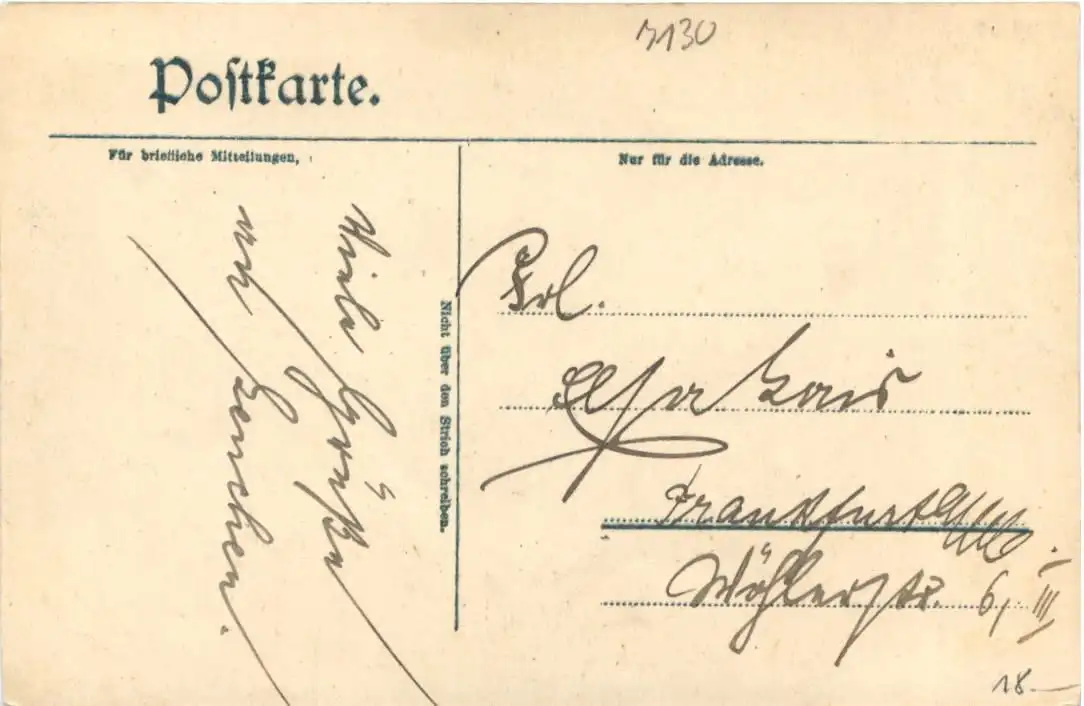 3130
Postkarte.
Für briefliche Mitteilungen,
Nur für die Adresse.
Viele Grüße
und
Nicht über den Strich schreiben.
Frl.
Elsa
Frankfurt a/M.
Wöhlerstr. 6, III
18.—